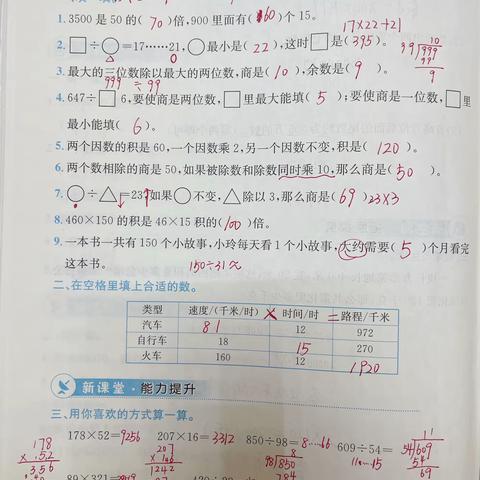 1. 3500 是 50 的( 70 )倍,900 里面有( 60 )个 15。
17×22+21
2. □÷○=17……21,○最小是( 22 ),这时□是( 395 )。
3. 最大的三位数除以最大的两位数,商是( 10 ),余数是( 9 )。
999 ÷ 99
99 999 10 99 9
4. 647÷□6,要使商是两位数,□里最大能填( 5 );要使商是一位数,□里
最小能填( 6 )。
5. 两个因数的积是 60,一个因数乘 2,另一个因数不变,积是( 120 )。
6. 两个数相除的商是 50,如果被除数和除数同时乘 10,那么商是( 50 )。
7. ○÷△=23,如果○不变,△除以 3,那么商是( 69 ) 23×3
8. 460×150 的积是 46×15 积的( 100 )倍。
9. 一本书一共有 150 个小故事,小玲每天看 1 个小故事,大约需要( 5 )个月看完
这本书。 150÷31≈
二、在空格里填上合适的数。
类型 速度/(千米/时) × 时间/时 = 路程/千米
汽车 81 12 972
自行车 18 15 270
火车 160 12 1920
新课堂·能力提升
三、用你喜欢的方式算一算。
178×52=9256 207×16=3312 850÷98=8……66 609÷54=11……15
178 × 52 356
207 × 16 1242
98 850 8 784
54 609 11 54 69
89×321=